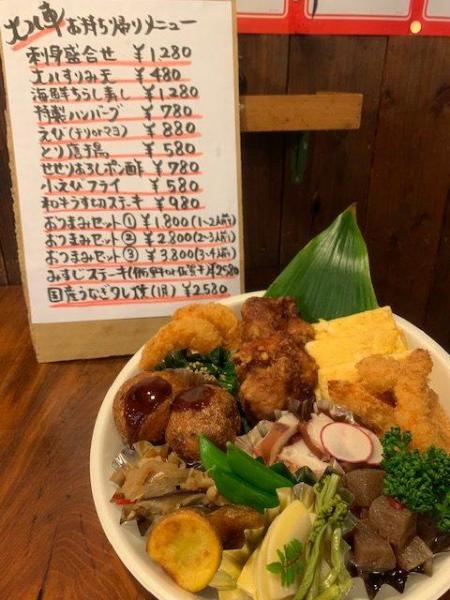 お持ち帰りメニュー
刺身盛合せ ¥1,280
すりみ天 ¥480
海鮮ちらし寿し ¥1,280
特製ハンバーグ ¥780
えび(チリorマヨ) ¥880
とり唐揚 ¥580
せせりおろしポン酢 ¥780
小えびフライ ¥580
和牛うす切ステーキ ¥980
おつまみセット① ¥1,800(1~2人前)
おつまみセット② ¥2800(2~3人前)
おつまみセット③ ¥3800(3~4人前)
みすじステーキ ¥2580
国産うなぎタレ焼(1尾) ¥2580